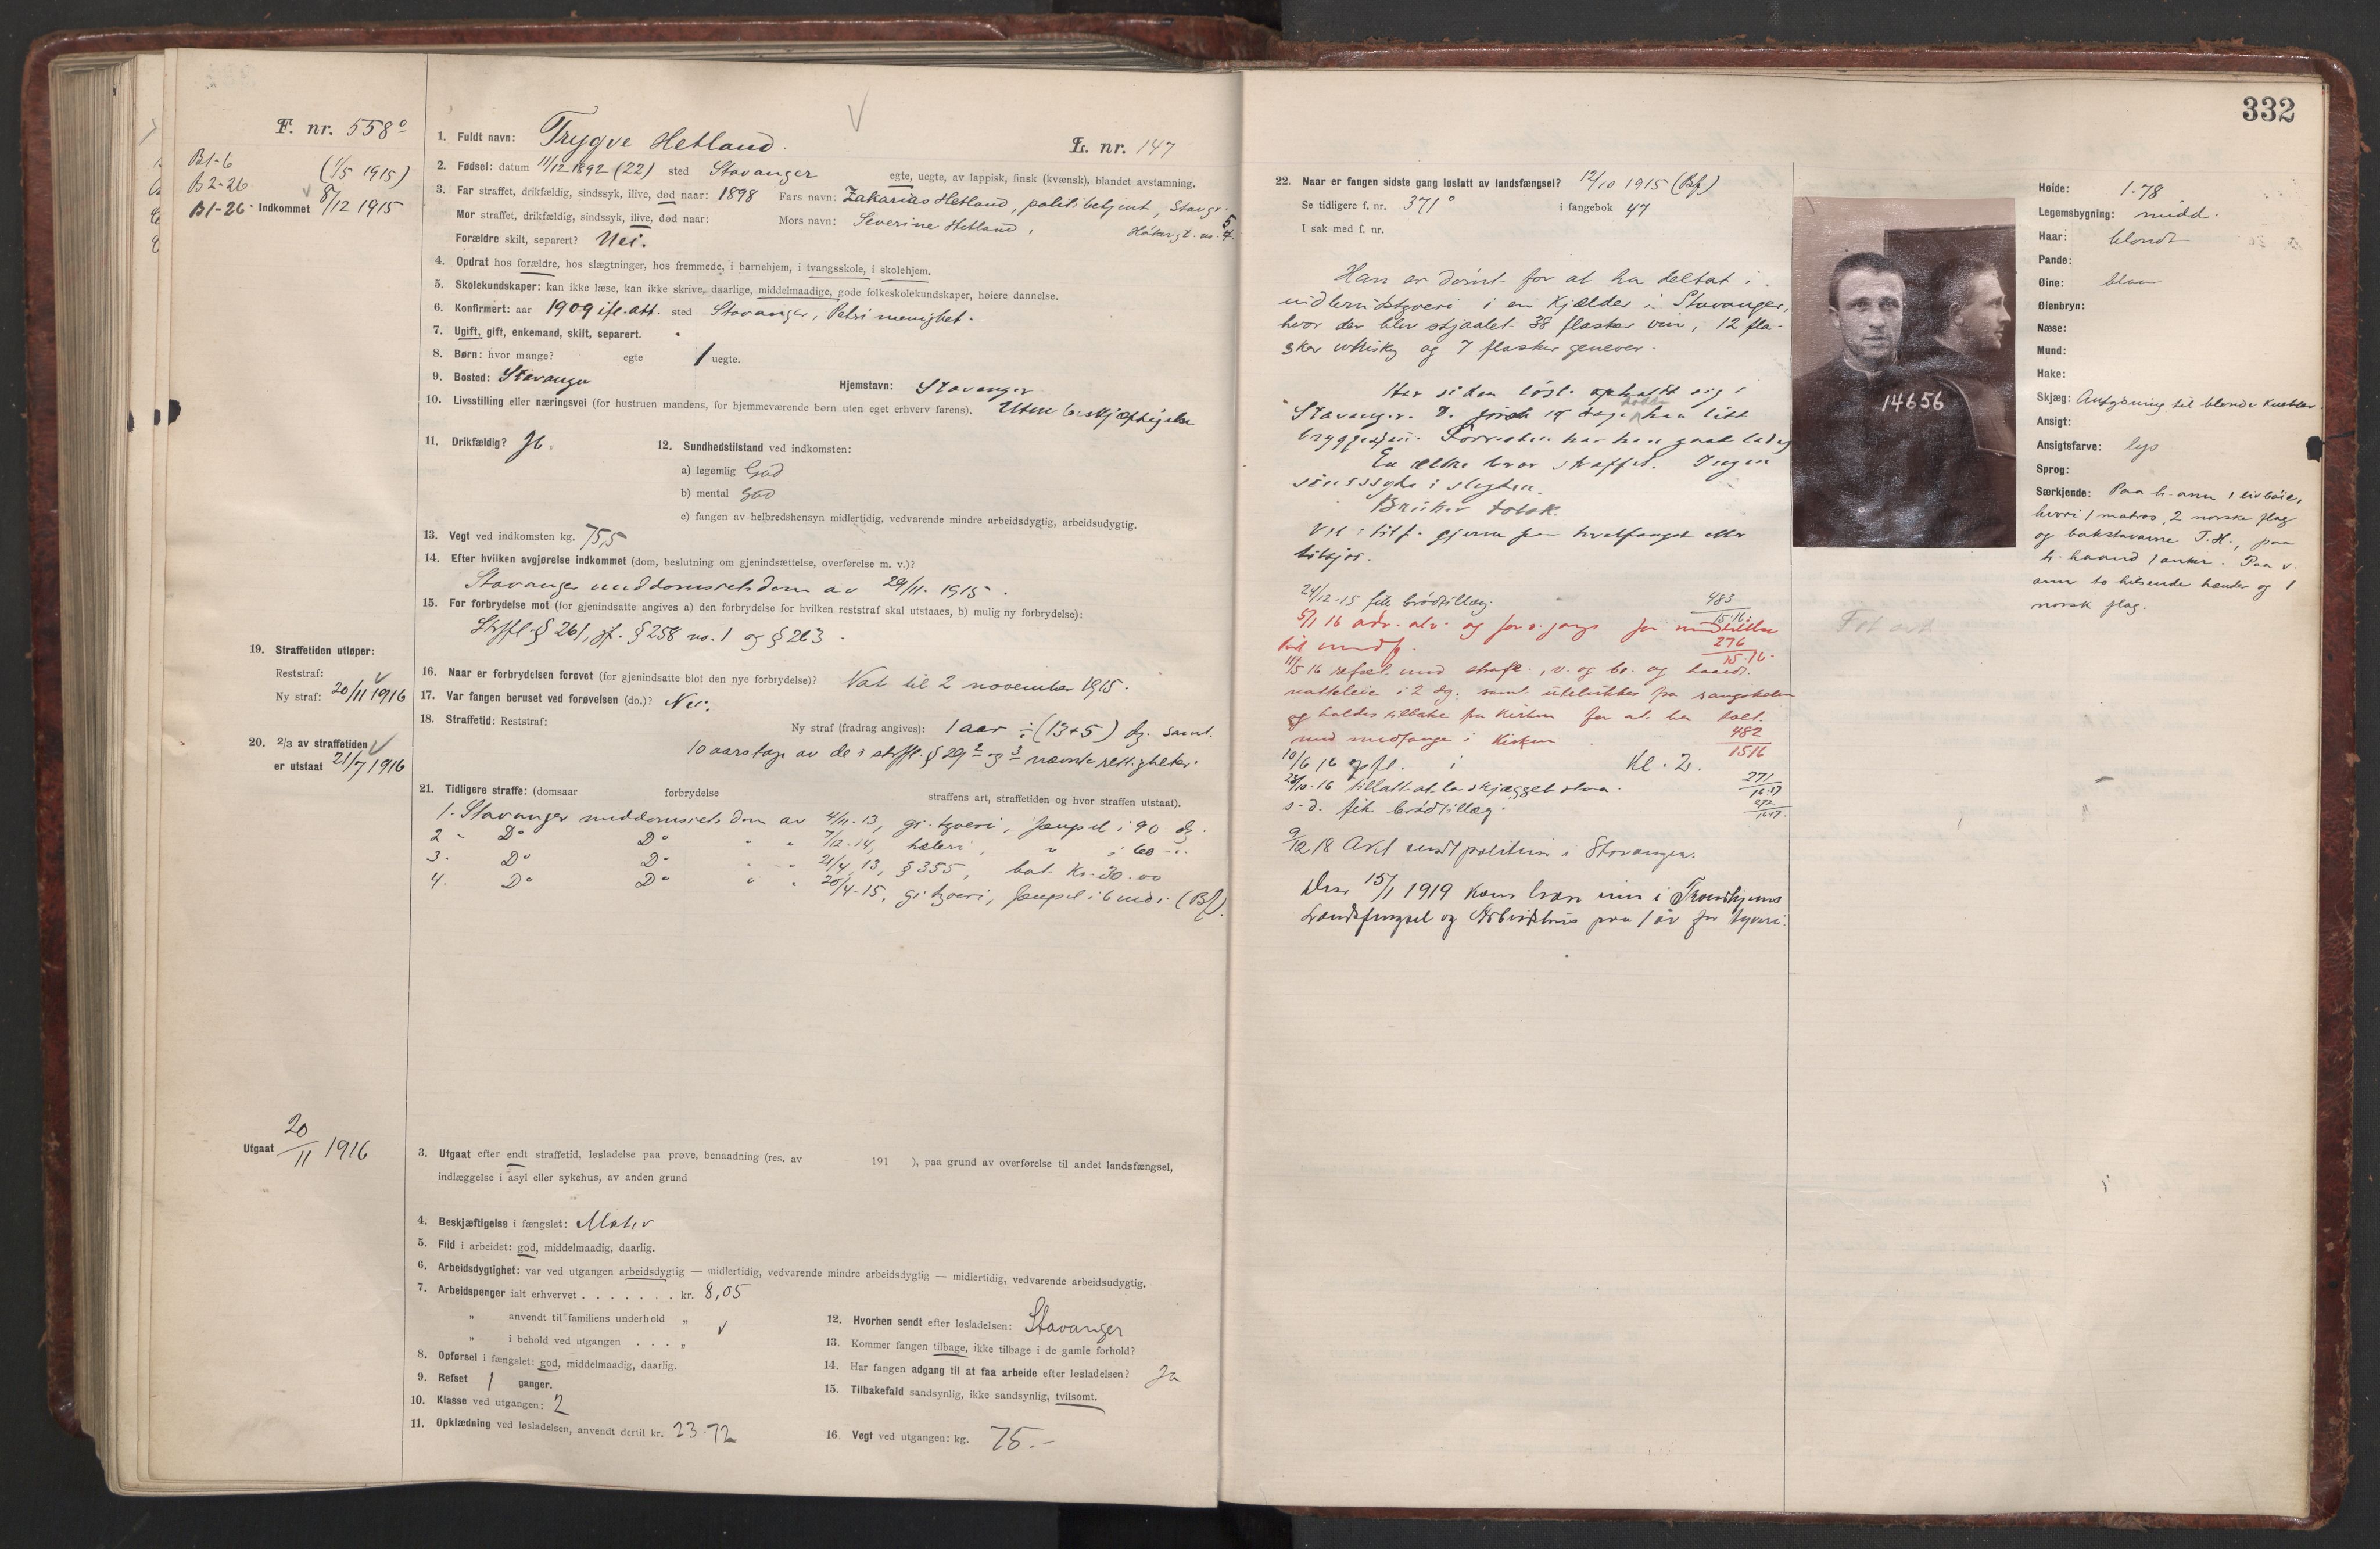 332
F. nr. 558°
B1-6 (1/5 1915)
B2-26
B1-26 Indkommet 8/12 1915
1. Fuldt navn: Trygve Hetland.
L. nr. 147
2. Fødsel: datum 11/12 1892 (22) sted Stavanger egte, uegte, av lappisk, finsk (kvænsk), blandet avstamning.
3. Far straffet, drikfældig, sindssyk, ilive, død naar: 1898 Fars navn: Zakarias Hetland, politibetjent, Stavgr.
Mor straffet, drikfældig, sindssyk, ilive, død naar: Mors navn: Severine Hetland,
Forældre skilt, separert? Nei.
4. Opdrat hos forældre, hos slægtninger, hos fremmede, i barnehjem, i tvangsskole, i skolehjem.
5. Skolekundskaper: kan ikke læse, kan ikke skrive, daarlige, middelmaadige, gode folkeskolekundskaper, høiere dannelse.
6. Konfirmert: aar 1909 ifl. att. sted Stavanger, Petri menighet.
7. Ugift, gift, enkemand, skilt, separert.
8. Børn: hvor mange? egte 1 uegte.
9. Bosted: Stavanger Hjemstavn: Stavanger
10. Livsstilling eller næringsvei (for hustruen mandens, for hjemmeværende børn uten eget erhverv farens). Uten beskjæftigelse
11. Drikfældig? Ja. 12. Sundhetstilstand ved indkomsten:
a) legemlig God
b) mental God
c) fangen av helbredshensyn midlertidig, vedvarende mindre arbeidsdygtig, arbeidsudygtig.
13. Vegt ved indkomsten kg. 75,5
14. Efter hvilken avgjørelse indkommet (dom, beslutning om gjenindsættelse, overførelse m. v.)?
Stavanger meddomsrets dom av 29/11. 1915.
15. For forbrydelse mot (for gjenindsatte angives a) den forbrydelse for hvilken reststraf skal utstaaes, b) mulig ny forbrydelse):
Strfl § 261, jf. § 258 no. 1 og § 263.
19. Straffetiden utløper:
Reststraf:
Ny straf: 20/11 1916
16. Naar er forbrydelsen forøvet (for gjenindsatte blot den nye forbrydelse)? Nat til 2 november 1915.
17. Var fangen beruset ved forøvelsen (do.)? Nei.
18. Straffetid: Reststraf: Ny straf (fradrag angives): 1 aar ÷ (13+5) dg. samt
10 aars tap av de i strfl. § 29 2 og 3 nævnte rettigheter.
20. 2/3 av straffetiden
er utstaat 21/7 1916
21. Tidligere straffe: (domsaar forbrydelse straffens art, straffetiden og hvor straffen utstaat).
1. Stavanger meddomsrets dom av 4/11-13, gr. tyveri, fængsel i 90 dg.
2 " D° D° " " 7/12-14, hæleri, " i 60 "
3. D° D° " " 21/4 13, § 355, bot Kr. 30.00
4. D° D° " " 20/4-15, gr. tyveri, fængsel i 6 mdr. (Bf).
Utgaat 20/11 1916
3. Utgaat efter endt straffetid, løsladelse paa prøve, benaadning (res. av 191 ), paa grund av overførelse til andet landsfængsel,
indlæggelse i asyl eller sykehus, av anden grund
4. Beskjæftigelse i fængslet: Maler
5. Flid i arbeidet: god, middelmaadig, daarlig.
6. Arbeidsdygtighet: var ved utgangen arbeidsdygtig — midlertidig, vedvarende mindre arbeidsdygtig — midlertidig, vedvarende arbeidsudygtig.
7. Arbeidspenger ialt erhvervet . . . . . . . kr. 8,05
" anvendt til familiens underhold "
" i behold ved utgangen . . . "
8. Opførsel i fængslet: god, middelmaadig, daarlig.
9. Refset 1 ganger.
10. Klasse ved utgangen: 2
11. Opklædning ved løsladelsen, anvendt dertil kr. 23.72
12. Hvorhen sendt efter løsladelsen: Stavanger
13. Kommer fangen tilbage, ikke tilbage i de gamle forhold?
14. Har fangen adgang til at faa arbeide efter løsladelsen? Ja
15. Tilbakefald sandsynlig, ikke sandsynlig, tvilsomt.
16 Vegt ved utgangen: kg. 75.-
22. Naar er fangen sidste gang løslatt av landsfængsel? 12/10 1915 (Bf)
Se tidligere f. nr. 371° i fangebok 47
I sak med f. nr.
Han er dømt for at ha deltat i
indbrudstyveri i en kjælder i Stavanger,
hvor der blev stjaalet 38 flasker vin, 12 fla-
sker whisky og 7 flasker genever.
Har siden løsl. opholdt sig i
Stavanger. I 14 dage han litt
bryggesjau. Forresten har han gaat ledig
En ældre bror straffet. Ingen
sindssyke i slegten.
Bruker tobak.
Vil i tilf. gjerne paa hvalfangst eller
tilsjøs.
24/12-15 fik brødtillæg. 483/15-16.
5/1 16 adv. alv. og for meddelelse
med 276/15-16.
11/5 16 refset med v. og br. og haardt
natteleie i 2 dg. samt utelukket fra sangskolen
og holdes tilbake fra kirken for at ha talt
med medfange i kirken 482/1516
10/6 16 opfl. i Kl. 2. 271/16-17
28/10-16 tillatt at la skjægget staa. 272/1617
s. d. fik brødtillæg.
9/12 18 Avt sendt politiet i Stavanger.
Den 15/1 1919 kom han inn i Trondhjems
Landsfengsel og Arbeidshus paa 1 år for tyveri.
14656
Høide: 1.78
Legemsbygning: midd.
Haar: blondt
Pande:
Øine: blaa
Øienbryn:
Næse:
Mund:
Hake:
Skjæg: Antydning til blonde knebler.
Ansigt:
Ansigtsfarve: lys
Sprog:
Særkjende: Paa h. arm 1 livbøie,
hvori 1 matros, 2 norske flag
og bokstavene T.H., paa
h. haand 1 anker. Paa v.
arm to hilsende hænder og 1
norsk flag.